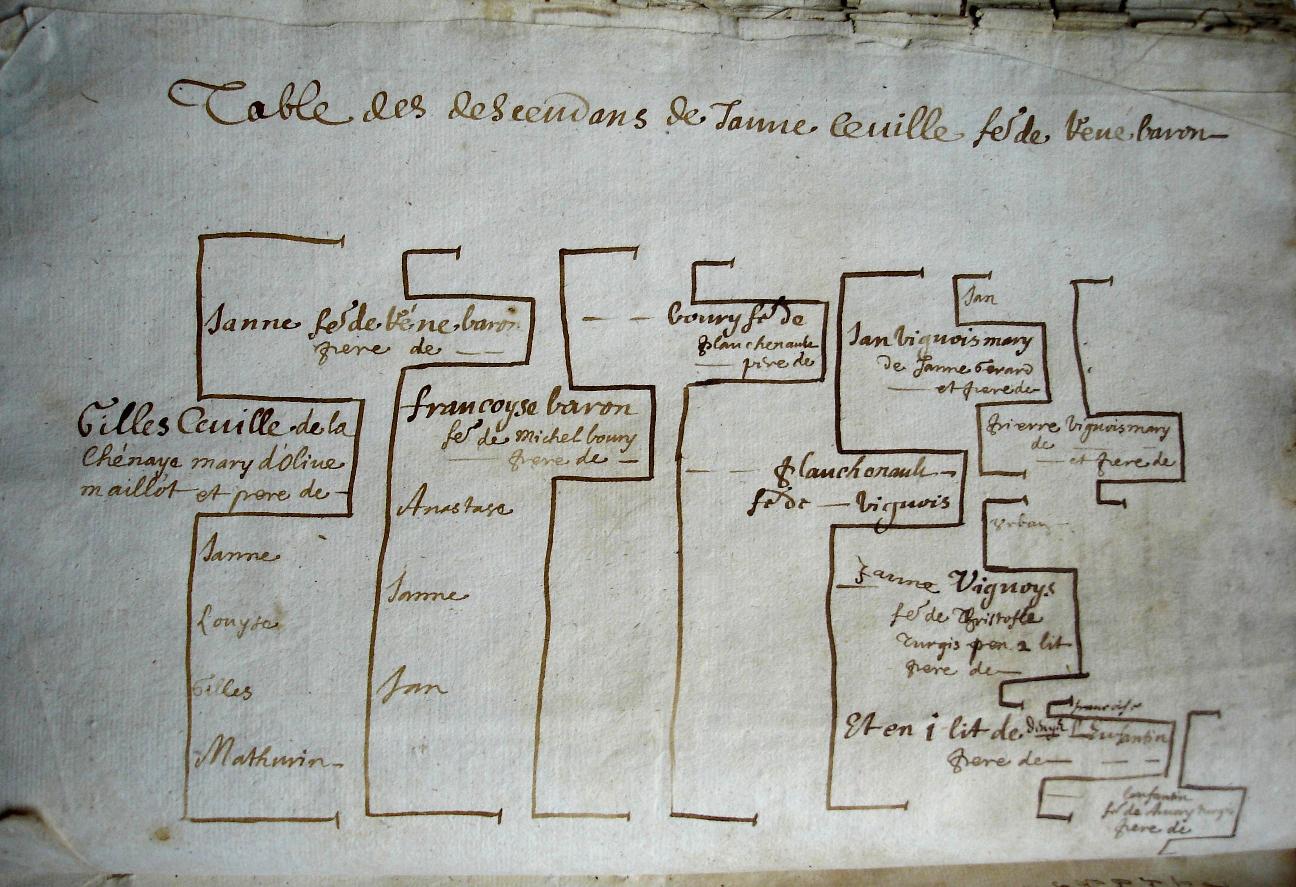 Table des descendans de Janne Ceuille fe de René baron
Janne fe de René baron
pere de
Gilles Ceuille de la
Chénaye mary d'Oliue
maillot et pere de
Janne
Louyse
Gilles
Mathurin
francoyse baron
fe de Michel boury
pere de
Anastase
Janne
Jan
boury fe de
planchenault
pere de
planchenault
fe de vignois
Jan
Jan vignois mary
de Janne Gerard
et pere de
pierre vignois mary
de
et pere de
vrban
Janne Vignoys
fe de Christofle
Turgis en 2 lit
pere de
Et en i lit de
francoise
pere de
fe de
pere de